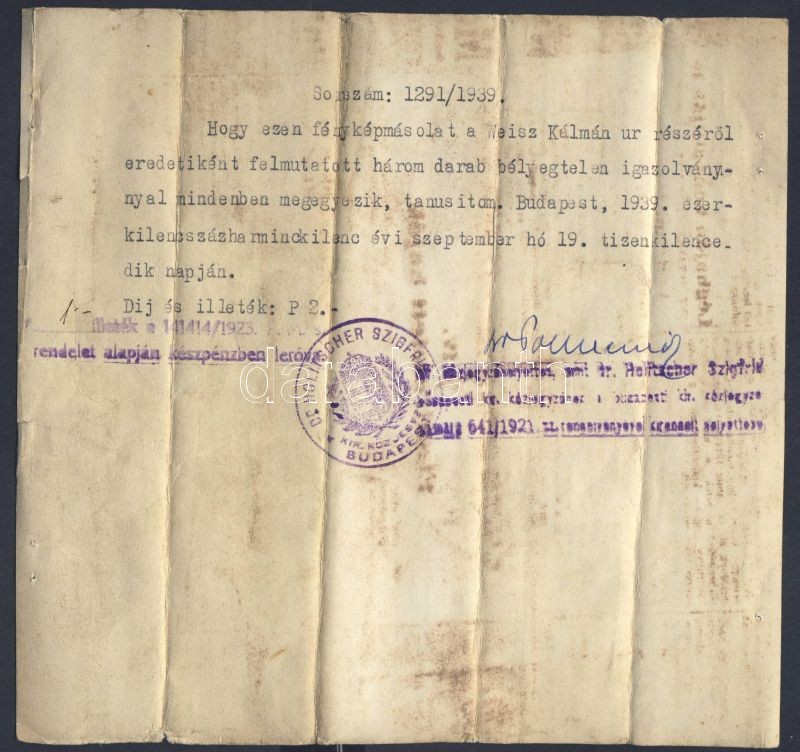 Sorszám: 1291/1939.
Hogy ezen fényképmásolat a Weisz Kálmán ur részéről
eredetiként felmutatott három darab bélyegtelen igazolvány-
nyal mindenben megegyezik, tanusitom. Budapest, 1939. ezer-
kilencszázharminckilenc évi szeptember hó 19. tizenkilence-
dik napján.
Dij és illeték: P 2.-
1.-
illeték a 141414/1923. P. M. s.
rendelet alapján készpénzben leróva.
DR HOLITSCHER SZIGFRID
KIR. KÖZJEGYZŐ
BUDAPEST
dr. Holitscher Szigfrid
budapesti kir. közjegyzőnek a budapesti kir. közjegyző
641/1921. sz.
darabanth